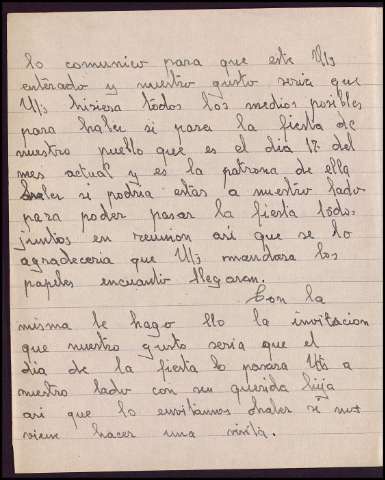 lo comunico para que este U/s
enterado y nuestro gusto seria que
U/s hiziera todos los medios posibles
para haber si para la fiesta de
nuestro pueblo que es el dia 17 del
mes actual y es la patrona de ella
haber si podria estar a nuestro lado
para poder pasar la fiesta todos
juntos en reunion asi que se lo
agradeceria que U/s mandara los
papeles encuanto llegaran.
Con la
misma le hago llo la invitacion
que nuestro gusto seria que el
dia de la fiesta lo pasara Uts a
nuestro lado con su querida hija
asi que lo envitamos ahaber si nos
viene hacer una visita.